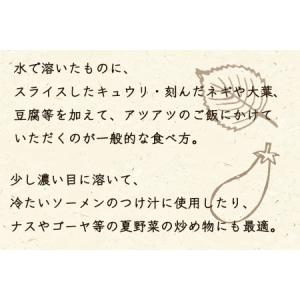 水で溶いたものに、
スライスしたキュウリ・刻んだネギや大葉、
豆腐等を加えて、アツアツのご飯にかけて
いただくのが一般的な食べ方。
少し濃い目に溶いて、
冷たいソーメンのつけ汁に使用したり、
ナスやゴーヤ等の夏野菜の炒め物にも最適。